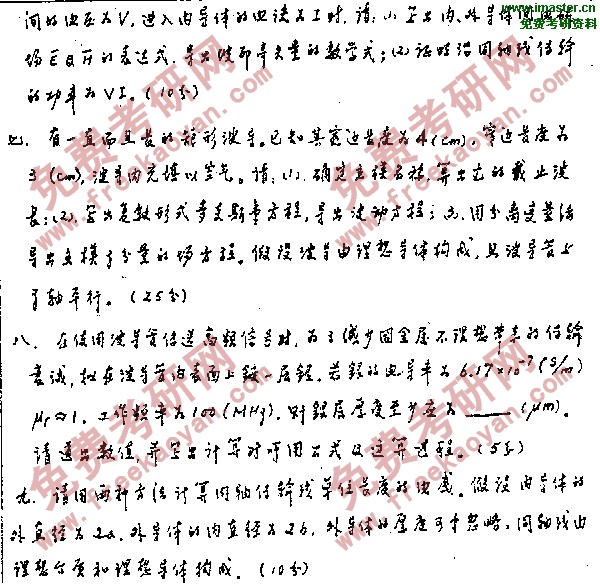 www.imaster.cn
免费考研资料
间的电压为V，进入内导体的电流为I时，请：(1)写出内、外导体间电磁
场E及H的表达式，导出坡印亭矢量的数学式；(2)证明沿同轴线传输
的功率为VI。(10分)
七、有一直而且长的矩形波导。已知其宽边长度为4(cm)，窄边长度为
3(cm)，波导内充填以空气。请：(1)、确定主模名称，算出它的截止波
长；(2)、写出复数形式麦克斯韦方程，导出波动方程；(3)、用分离变量法
导出主模各分量的场方程。假设波导由理想导体构成，且波导管与
z轴平行。(25分)
八、在使用波导管传送高频信号时，为了减少因金属不理想带来的传输
衰减，拟在波导管内表面上镀一层银。若银的电导率为6.17×10⁻⁷(S/m)
μr≈1，工作频率为100(MHz)，则银层厚度至少应为____(μm)。
请选出数值，并写出计算时所用公式及运算过程。(5分)
九、请用两种方法计算同轴传输线单位长度的电感。假设内导体的
外直径为2a，外导体的内直径为2b，外导体的厚度可予忽略，同轴线由
理想介质和理想导体构成。(10分)
免费考研网
www.freekaoyan.com